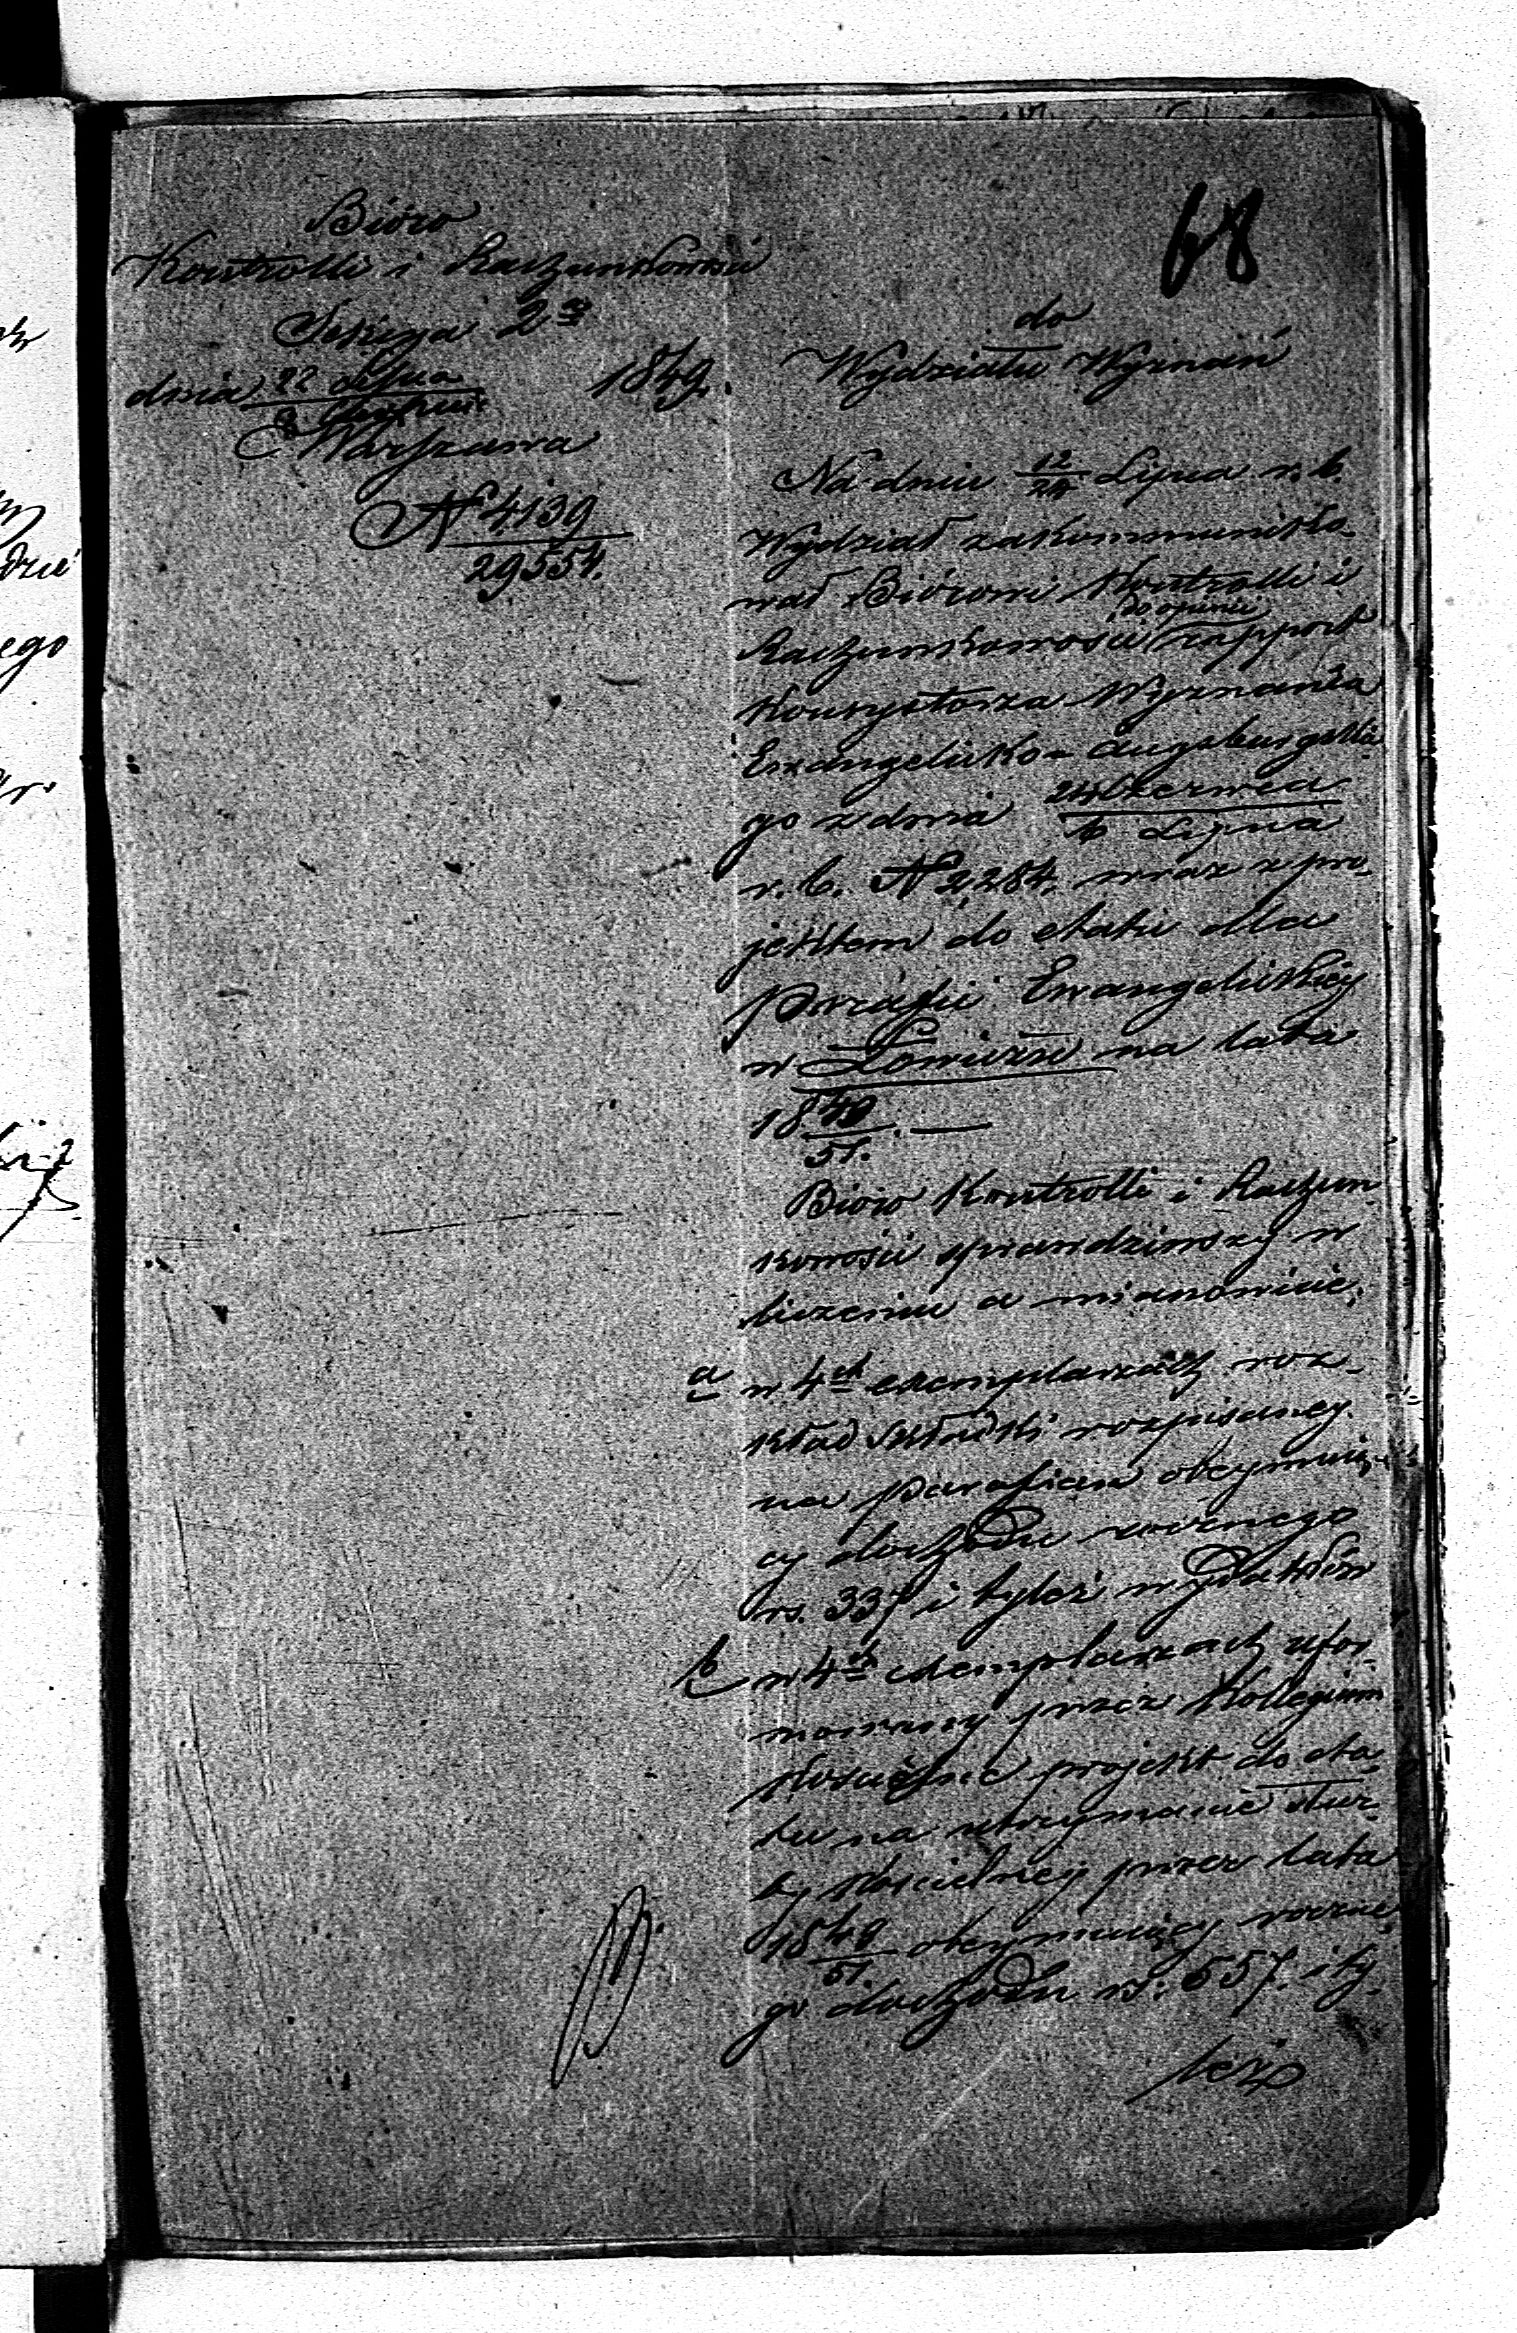 68
Bióro
Kontrolli i Rachunkowości
Sekcya 2ª
dnia 22 Lipca 1849.
3 Sierpnia
Warszawa
N 4139
29554.
do
Wydziału Wyznań
Na dniu 12/24 Lipca r. b.
Wydział zakommuniko-
wał Biórowi Kontrolli i
do opinii
Rachunkowości rapport
Konsystorza Wyznania
Ewangelicko-Augsburgskie-
go z dnia 24 Czerwca
6 Lipca
r. b. N 2,284. wraz z pro-
jektem do etatu dla
Parafii Ewangelickiéy
w Łowiczu na lata
18 49/51. —
Bióro Kontrolli i Rachun
kowości sprawdziwszy w
liczeniu a mianowicie:
a w 4ch exemplarzach roz-
kład składki rozpisanéy
na Parafian obeymują-
cy dochodu rocznego
rs. 337 i tyleż wydatków
b w 4ch exemplarzach ufor-
mowany przez Kollegium
Kościelne projekt do eta-
tu na utrzymanie służ-
by Kościelnéy przez lata
18 49/51. obeymujący roczne-
go dochodu rs. 557. i ty-
leż